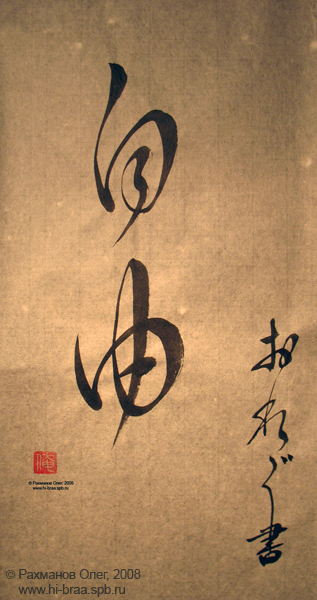 自由
おれぐ書
© Рахманов Олег, 2008
www.hi-braa.spb.ru
© Рахманов Олег, 2008
www.hi-braa.spb.ru